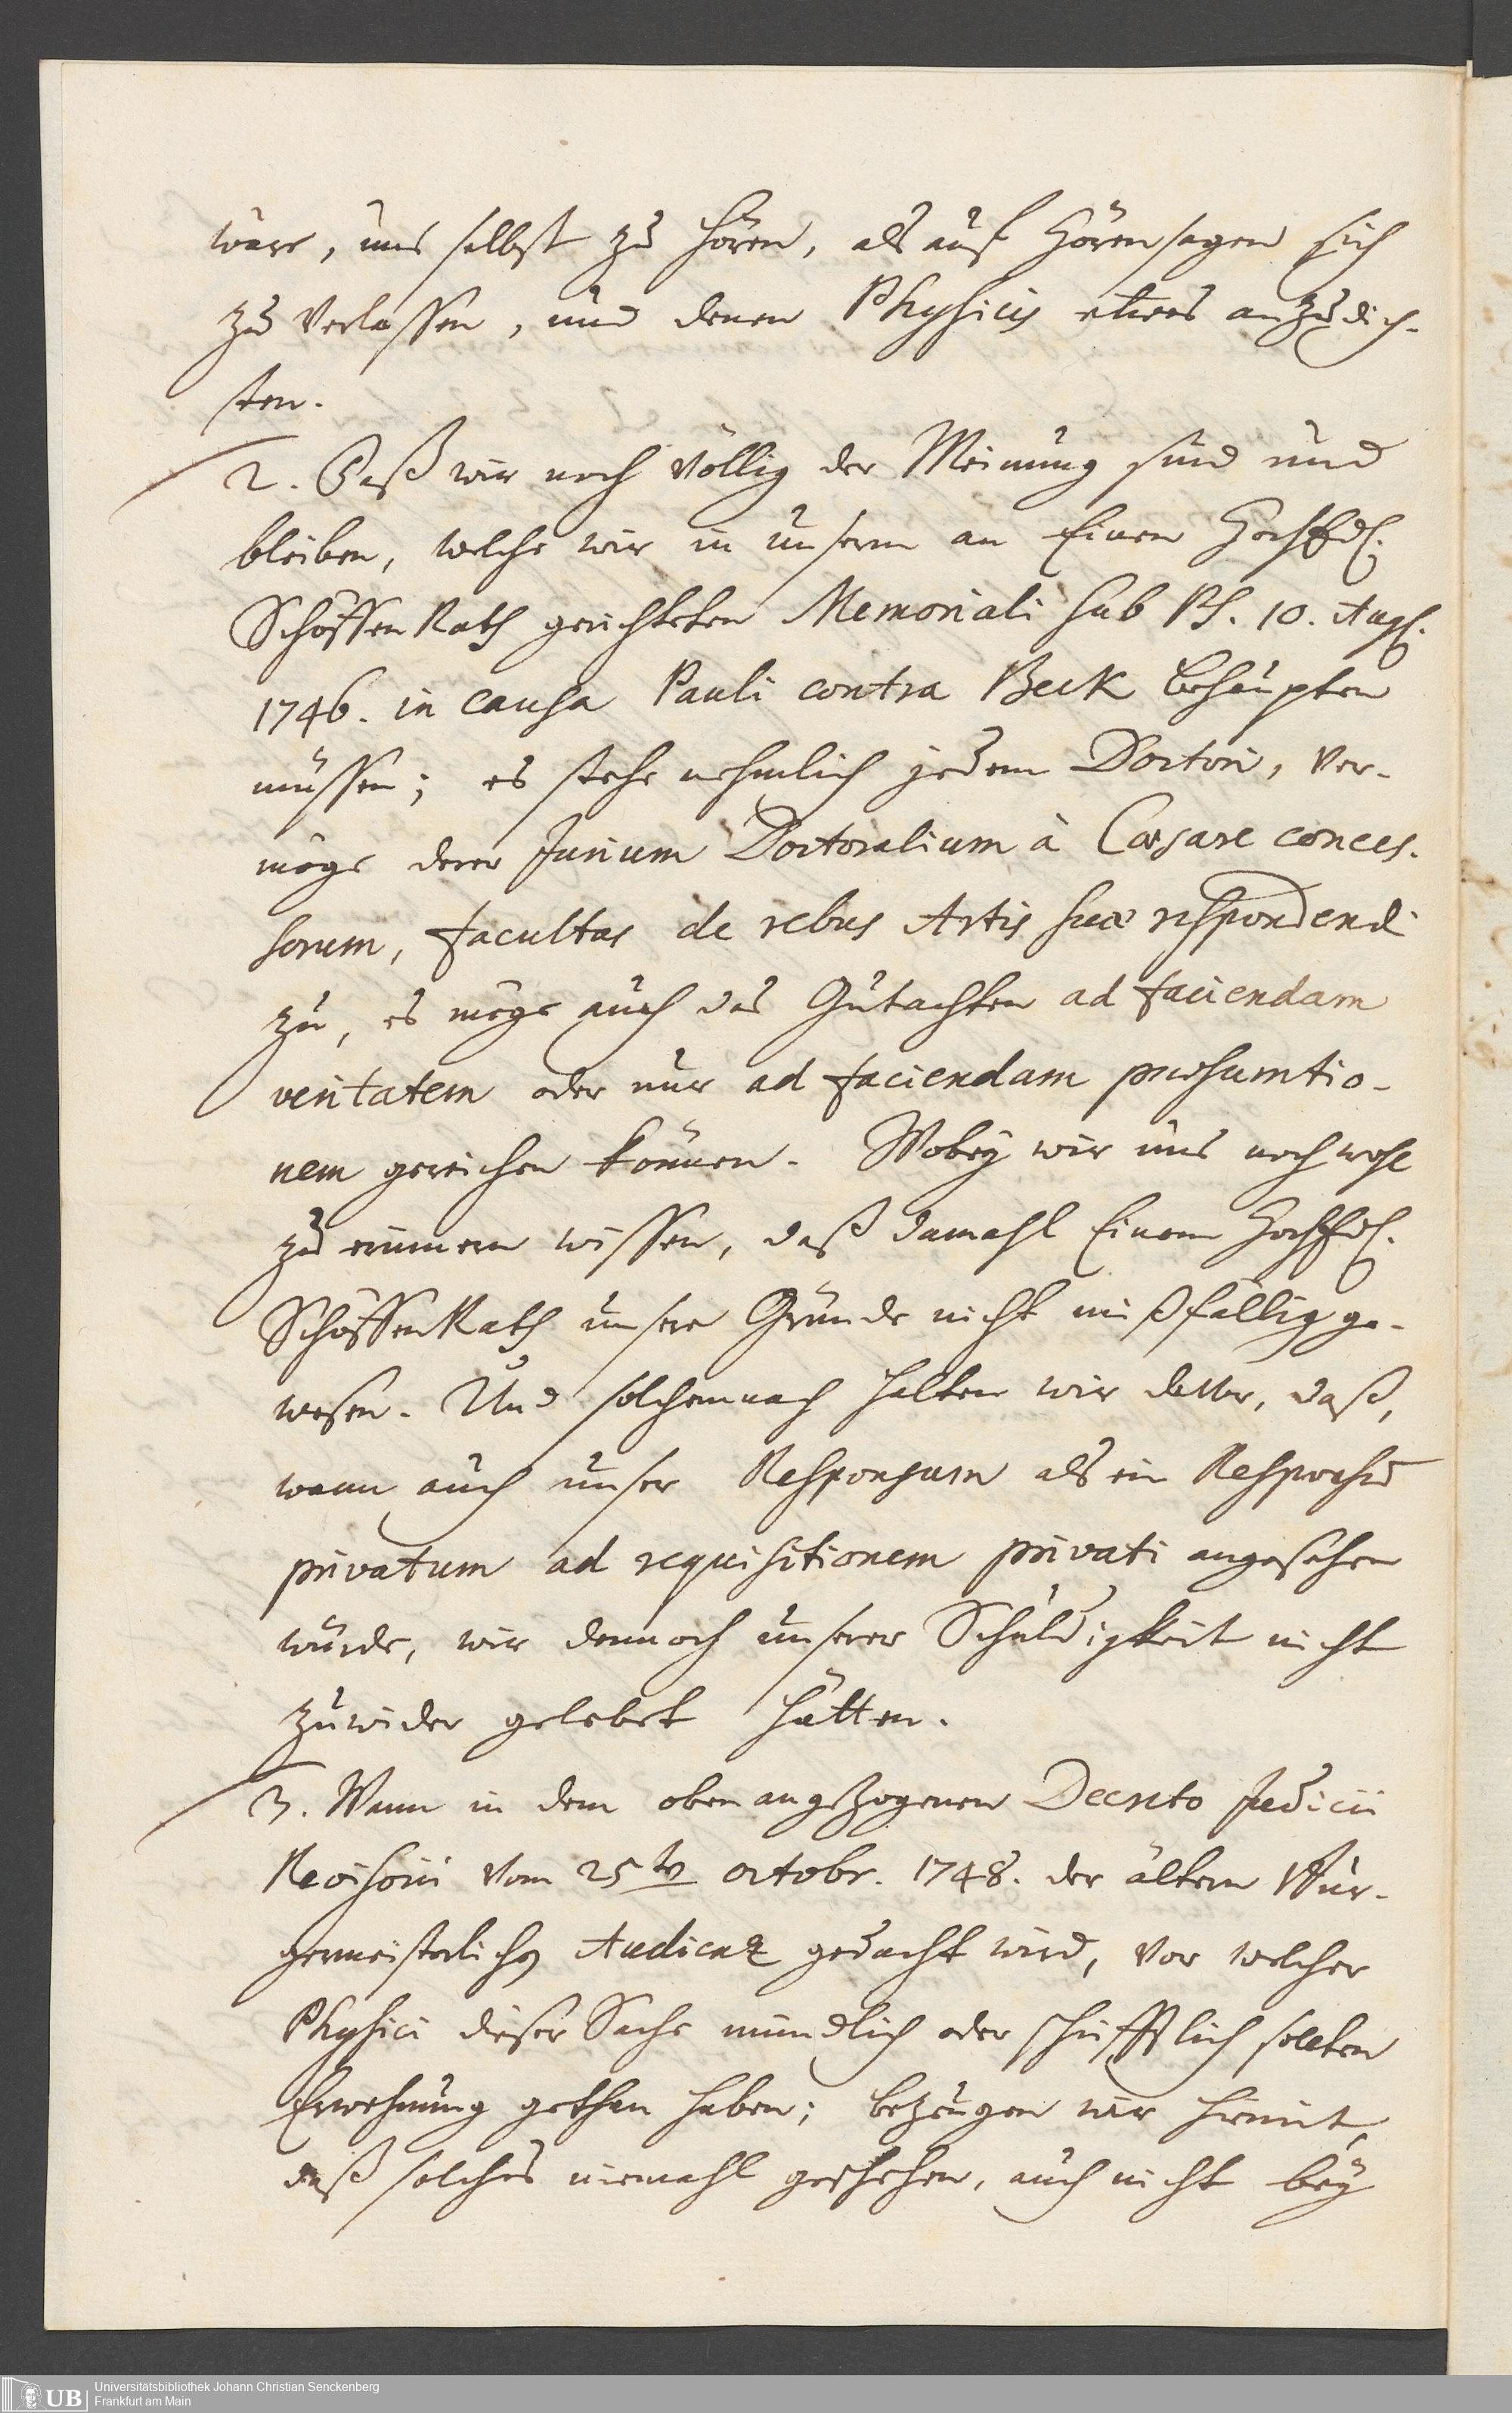 wäre, uns selbst zu hören, als auf Hörensagen sich
zu verlassen, und denen Physicis etwas anzudich-
ten.
2. Daß wir noch völlig der Meinung sind und
bleiben, welche wir in unserm an Einen HochEdl.
Schöffen Rath gerichteten Memoriali sub Ps. 10. Aug.
1746. in causa Pauli contra Beck behaupten
müssen; es stehe nehmlich jedem Doctori, ver-
möge derer Jurium Doctoralium à Cæsare conces-
sorum, facultas de rebus Artis suæ respondendi
zu, es möge auch das Gutachten ad faciendam
veritatem oder nur ad faciendam præsumtio-
nem gereichen können. Wobey wir uns noch wohl
zu erinnern wissen, daß damahl Einem HochEdl.
Schöffen Rath unsere Gründe nicht mißfällig ge-
wesen. Und solchemnach halten wir davor, daß,
wann auch unser Responsum als ein Responsū
privatum ad requisitionem privati angesehen
würde, wir dennoch unserer Schuldigkeit nicht
zuwider gelebet hätten.
3. Wann in dem oben angezogenen Decreto Judicii
Revisorii vom 25ten Octobr. 1748. der ältern Bür-
germeisterlichen Audienz gedacht wird, vor welcher
Physici dieser Sache mündlich oder schrifftlich sollten
Erwehnung gethan haben; bezeugen wir hiemit,
daß solches niemahl geschehen, auch nicht bey
Universitätsbibliothek Johann Christian Senckenberg
Frankfurt am Main
UB